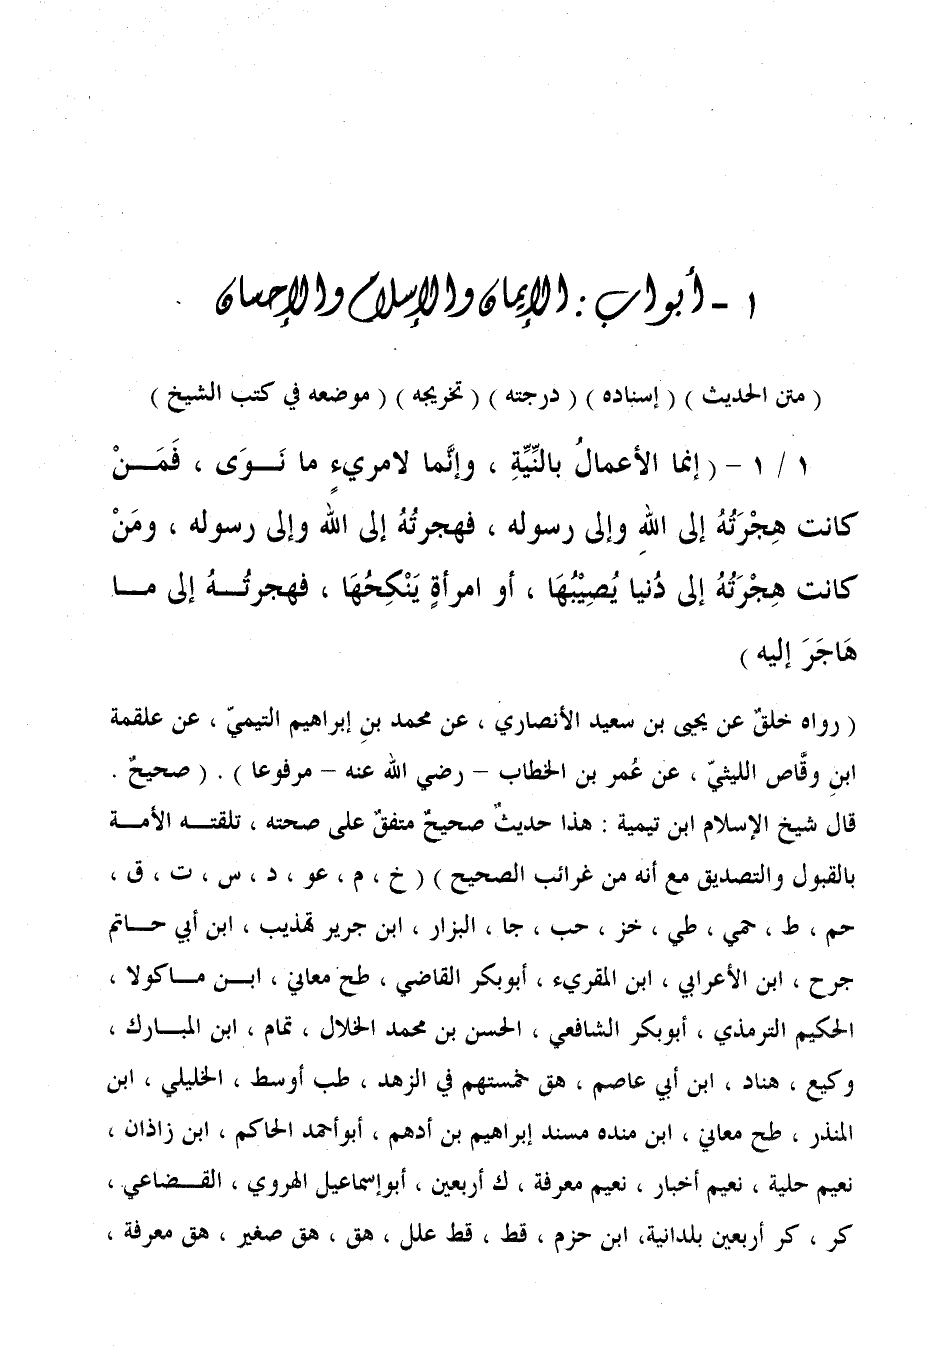 ١ - أبواب : الإيمان والإسلام والإحسان
( متن الحديث ) ( إسناده ) ( درجته ) ( تخريجه ) ( موضعه في كتب الشيخ )
١ / ١ - ( إنما الأعمالُ بالنِّيَّةِ ، وإنَّما لامريءٍ ما نَـوَى ، فَمَـنْ
كانت هِجْرَتُهُ إلى اللهِ وإلى رسوله ، فهجرتُهُ إلى اللهِ وإلى رسوله ، ومَنْ
كانت هِجْرَتُهُ إلى دُنيا يُصِيْبُهَا ، أو امرأةٍ يَنْكِحُهَا ، فهجرتُـهُ إلى مـا
هَاجَرَ إليه )
( رواه خلقٌ عن يحيى بن سعيد الأنصاري ، عن محمد بنِ إبراهيم التيميّ ، عن علقمة
ابنِ وقَّاص الليثيّ ، عن عُمر بن الخطاب – رضي الله عنه – مرفوعا ) . ( صحيحٌ .
قال شيخ الإسلام ابن تيمية : هذا حديثٌ صحيحٌ متفقٌ على صحته ، تلقتـه الأمـة
بالقبول والتصديق مع أنه من غرائب الصحيح ) ( خ ، م ، عو ، د ، س ، ت ، ق ،
حم ، ط ، حمي ، طي ، خز ، حب ، جا ، البزار ، ابن جرير تهذيب ، ابن أبي حـاتم
جرح ، ابن الأعرابي ، ابن المقريء ، أبوبكر القاضي ، طح معاني ، ابـن مـاكولا ،
الحكيم الترمذي ، أبوبكر الشافعي ، الحسن بن محمد الخلال ، تمام ، ابن المبـارك ،
وكيع ، هناد ، ابن أبي عاصم ، هق خمستهم في الزهد ، طب أوسط ، الخليلي ، ابن
المنذر ، طح معاني ، ابن منده مسند إبراهيم بن أدهم ، أبوأحمد الحاكم ، ابن زاذان ،
نعيم حلية ، نعيم أخبار ، نعيم معرفة ، ك أربعين ، أبوإسماعيل الهروي ، القـضاعي ،
كر ، كر أربعين بلدانية، ابن حزم ، قط ، قط علل ، هق ، هق صغير ، هق معرفة ،